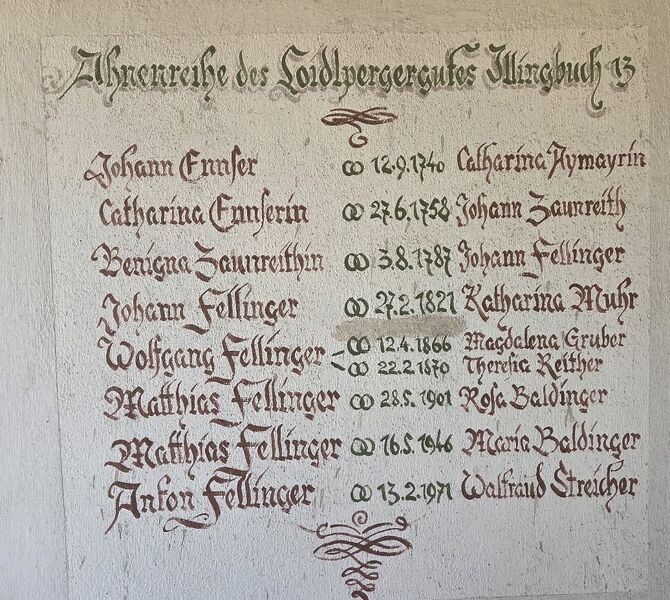 Ahnenreihe des Loidlpergergutes Illingbuch 13
Johann Ennser ⚭ 12.9.1740 Catharina Aymayrin
Catharina Ennserin ⚭ 27.6.1758 Johann Zaunreith
Benigna Zaunreithin ⚭ 3.8.1787 Johann Fellinger
Johann Fellinger ⚭ 27.2.1821 Katharina Muhr
Wolfgang Fellinger ⚭ 12.4.1866 Magdalena Gruber
⚭ 22.2.1870 Theresia Reither
Matthias Fellinger ⚭ 28.5.1901 Rosa Baldinger
Matthias Fellinger ⚭ 16.5.1946 Maria Baldinger
Anton Fellinger ⚭ 13.2.1971 Waltraud Streicher